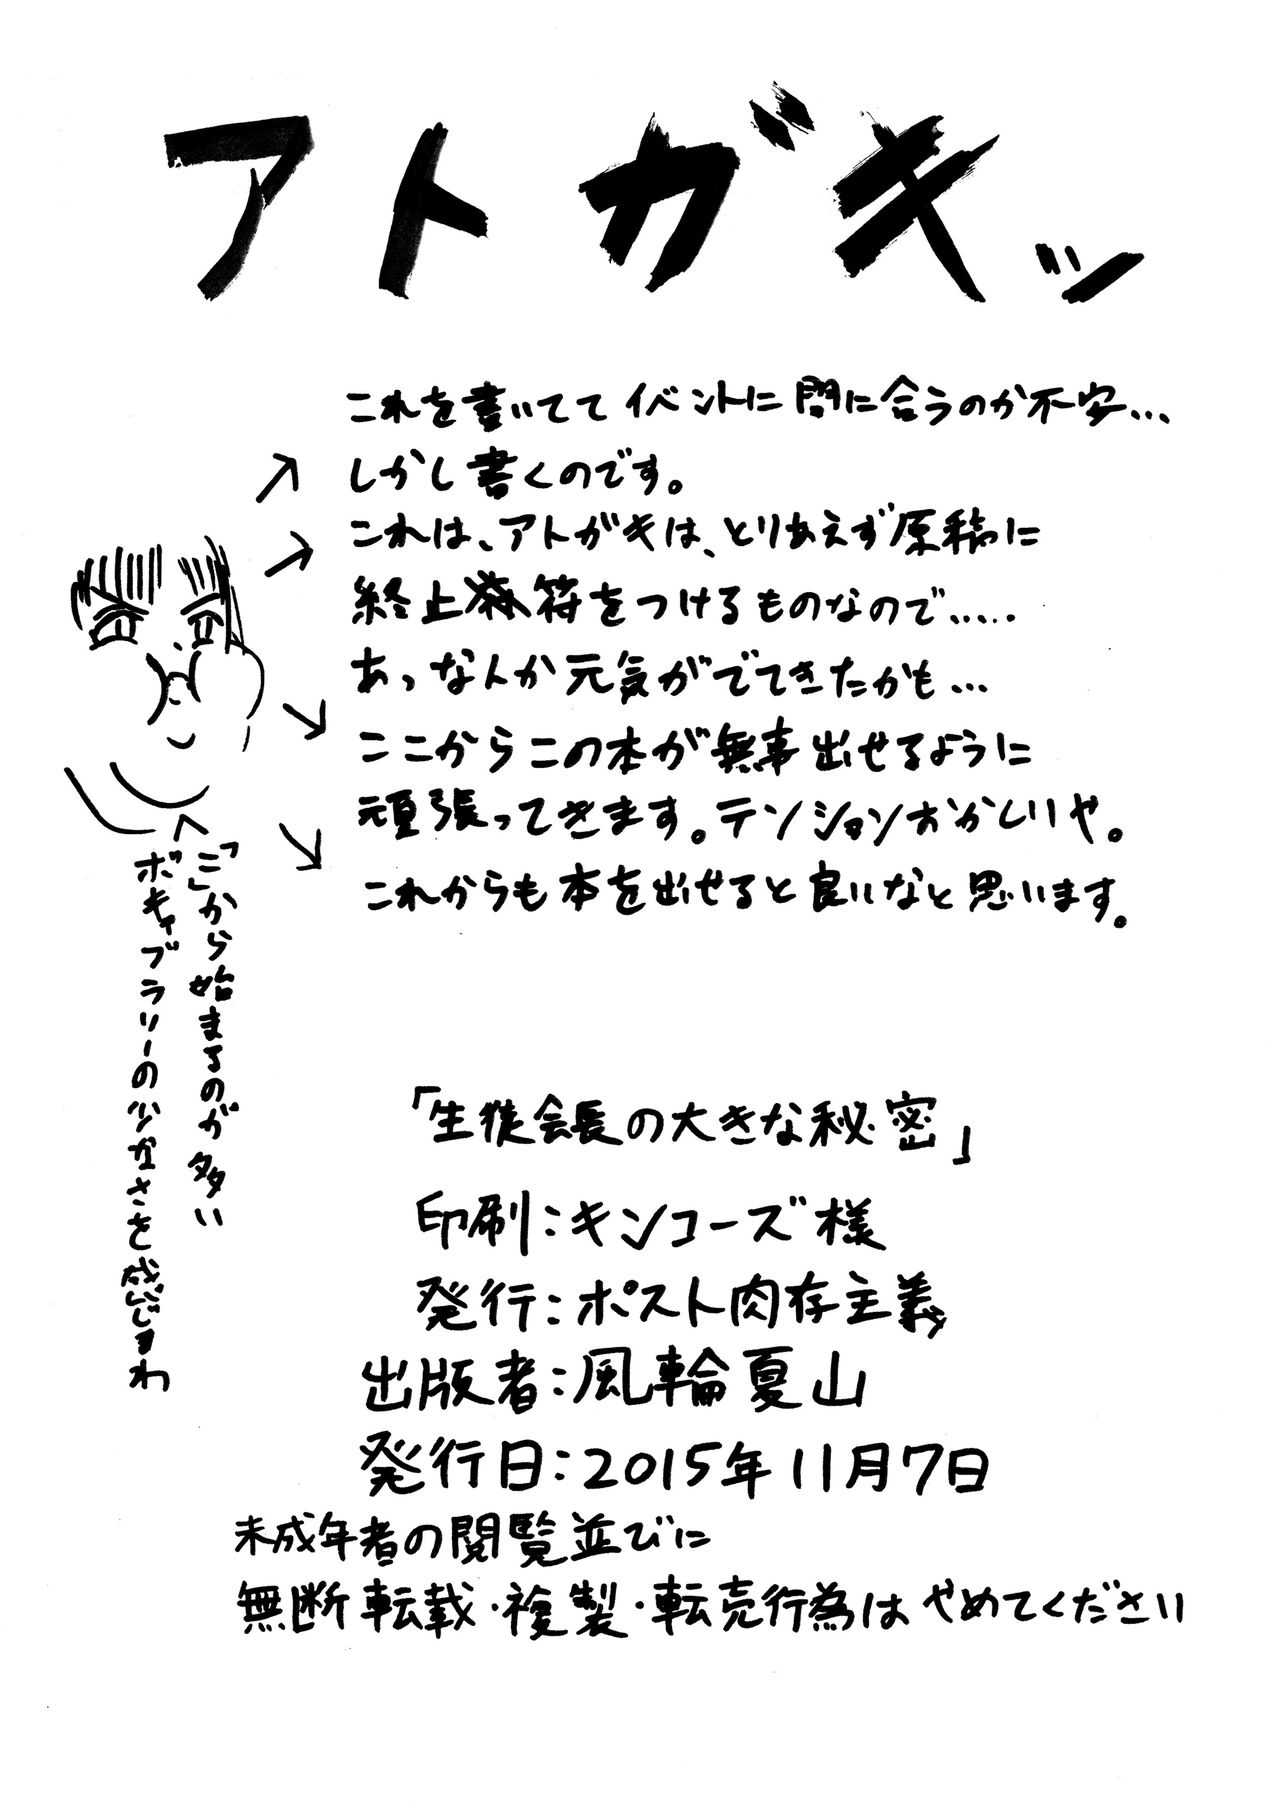 アトガキッ
これを書いてて イベントに間に合うのか不安…
しかし書くのです。
これは、アトガキは、とりあえず原稿に
終止符をつけるものなので.....
あっなんか元気がでてきたかも…
ここからこの本が無事出せるように
頑張ってきます。テンションおかしいや。
これからも本を出せると良いなと思います。
「こ」から始まるのが多い
ボキャブラリーの少なさを感じるわ
「生徒会長の大きな秘密」
印刷:キンコーズ様
発行:ポスト肉存主義
出版者:風輪夏山
発行日:2015年11月7日
未成年者の閲覧並びに
無断転載・複製・転売行為はやめてください